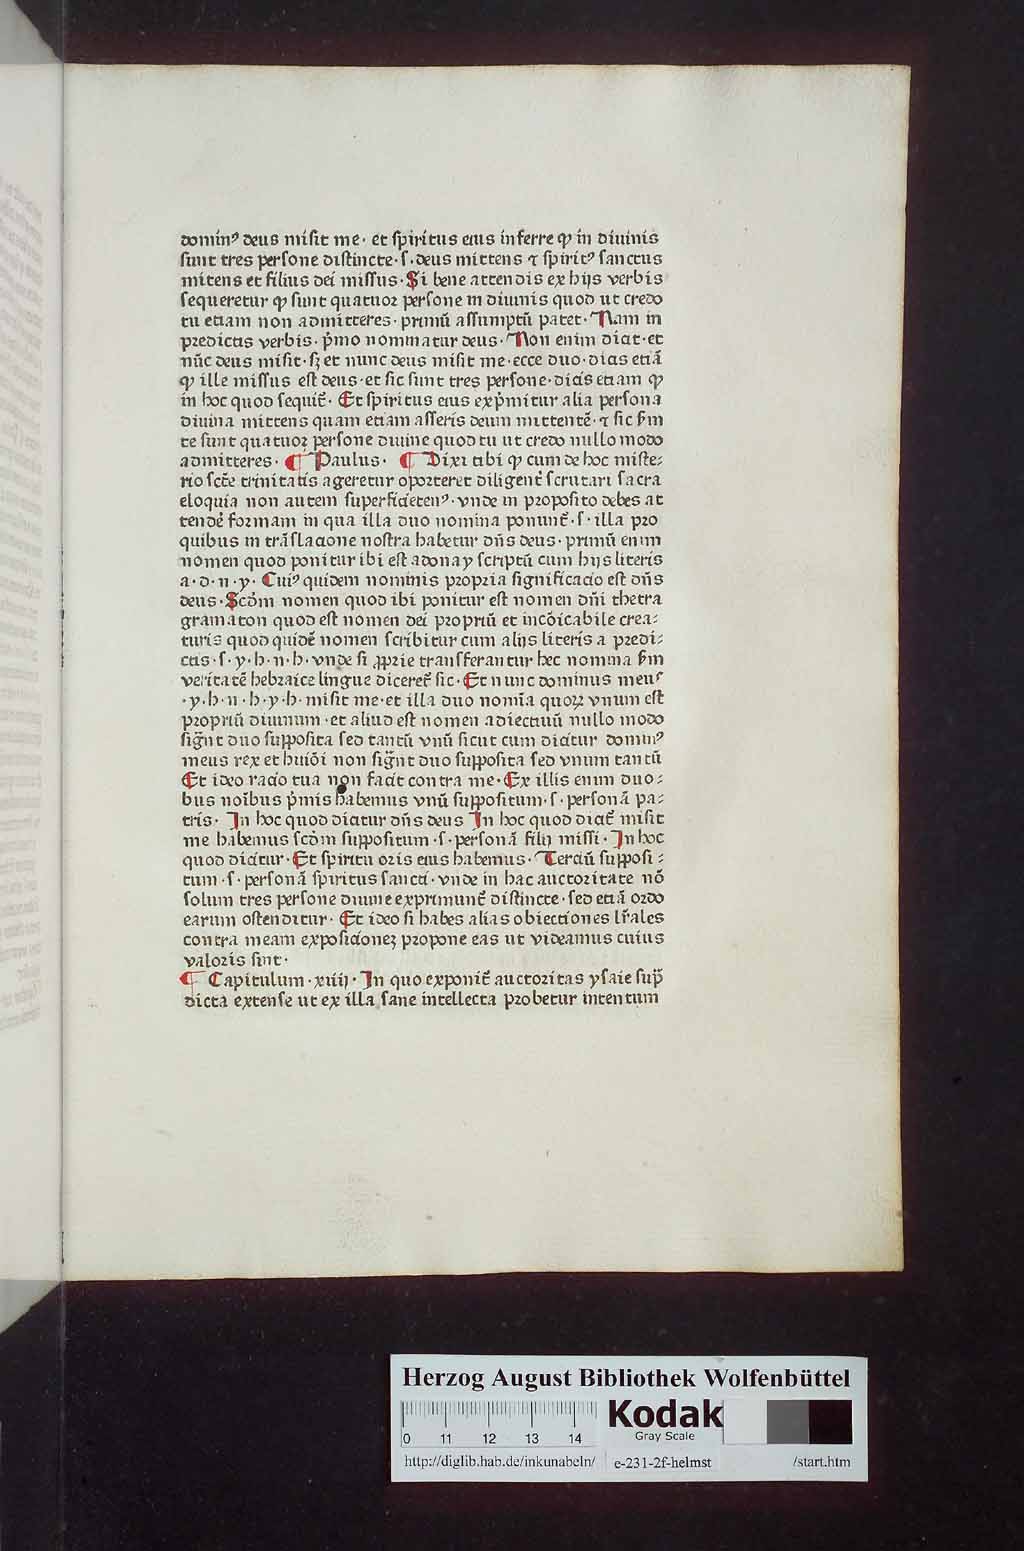 dominꝰ deus misit me· et spiritus eius inferre ꝙ in diuinis
sunt tres persone distincte·s·deus mittens ⁊ spiritꝰ sanctus
mitens et filius dei missus·Si bene attendis ex hijs verbis
sequeretur ꝙ sunt quatuor persone in diuinis quod ut credo
tu etiam non admitteres·primū assumptū patet·Nam in
predictis verbis·p̄mo nominatur deus·Non enim dicit·et
nūc deus misit·sꝫ et nunc deus misit me·ecce duo·dicis etiā
ꝙ ille missus est deus·et sic sunt tres persone·dicis etiam ꝙ
in hoc quod sequit᷑·Et spiritus eius exp̄mitur alia persona
diuina mittens quam etiam asseris deum mittentē·⁊ sic ẜm
te sunt quatuor persone diuine quod tu ut credo nullo modo
admitteres· ¶ Paulus· ¶ Dixi tibi ꝙ cum de hoc miste⸗
rio scte᷑ trinitatis ageretur oporteret diligent᷑ scrutari sacra
eloquia non autem superficietenꝰ·vnde in proposito debes at
tende᷑ formam in qua illa duo nomina ponunt᷑·s·illa pro
quibus in trāslacione nostra habetur dn̄s deus·primū enim
nomen quod ponitur ibi est adonay scriptū cum hijs literis
a·d·n·y·Cuiꝰ quidem nominis propria significacio est dn̄s
deus·Scōm nomen quod ibi ponitur est nomen dn̄i thetra
gramaton quod est nomen dei propriū et incōicabile crea⸗
turis quod quidē nomen scribitur cum alijs literis a predi⸗
ctis·s·y·h·n·h·vnde si ꝓprie transferantur hec nomina ẜm
veritatē hebraice lingue diceret᷑ sic·Et nunc dominus meuꝰ
·y·h·n·h·y·h·misit me·et illa duo nomīa quorꝝ vnum est
propriū diuinum·et aliud est nomen adiectiuū nullo modo
sign̄t duo supposita sed tantū vnū sicut cum dicitur dominꝰ
meus rex et huiōi non sign̄t duo supposita sed vnum tantū
Et ideo racio tua non facit contra me·Ex illis enim duo⸗
bus noībus p̄mis habemus vnū suppositum·s·personā pa⸗
tris·In hoc quod dicitur dn̄s deus In hoc quod dicit᷑ misit
me habemus scōm suppositum·s·personā filij missi·In hoc
quod dicitur·Et spiritu oris eius habemus·Terciū supposi⸗
tum·s·personā spiritus sancti·vnde in hac auctoritate nō
solum tres persone diuine exprimunt᷑ distincte·sed etiā ordo
earum ostenditur·Et ideo si habes alias obiectiones lr̄ales
contra meam exposicionez propone eas ut videamus cuius
valoris sint·
¶ Capitulum·xiiij·In quo exponit᷑ auctoritas ysaie sup᷑
dicta extense ut ex illa sane intellecta probetur intentum
Herzog August Bibliothek Wolfenbüttel
0 11 12 13 14
Kodak
Gray Scale
http://diglib.hab.de/inkunabeln/ e-231-2f-helmst /start.htm